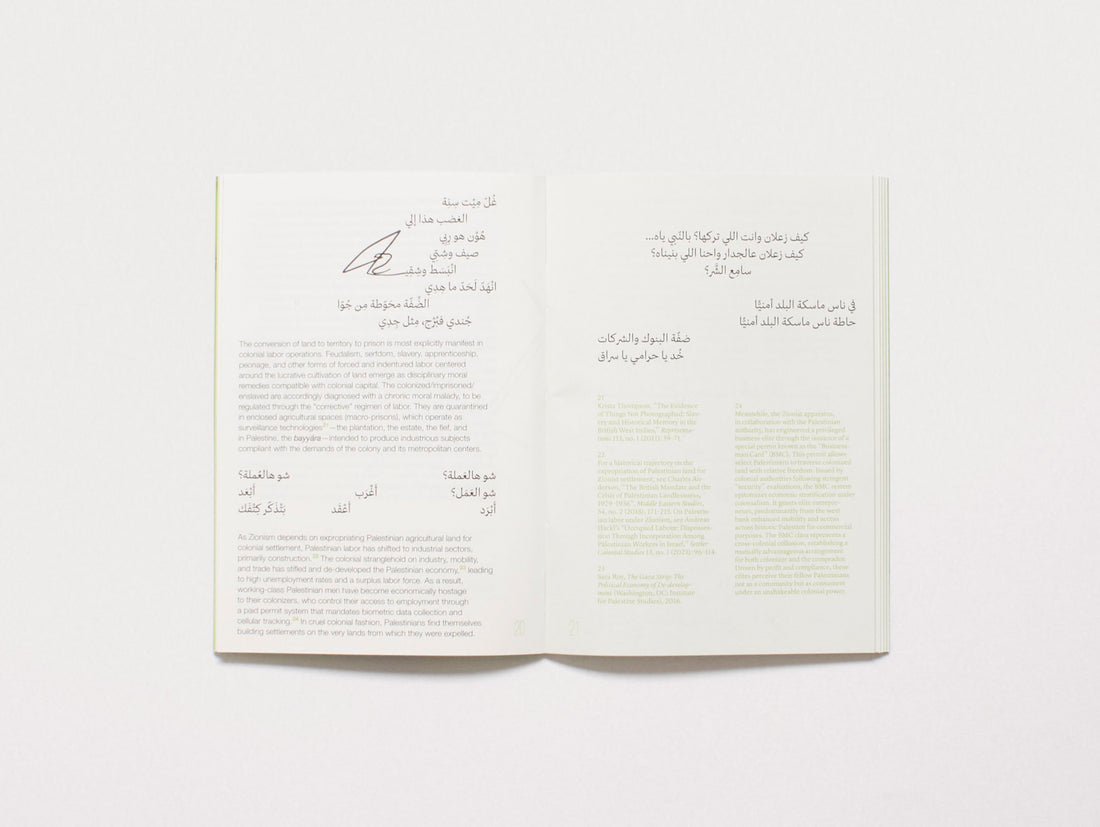 غُلّ مِيْت سِنِة
الغضب هذا إلي
هُوِّن هو رِبي
صيف وشِتي
انْبَسَط وشِقِي
انْهَدّ لَحَدّ ما هِدِي
الضَّفّة محَوَّطة مِن جُوّا
جُندي فبُرْج، مِثل جِدِي
The conversion of land to territory to prison is most explicitly manifest in
colonial labor operations. Feudalism, serfdom, slavery, apprenticeship,
peonage, and other forms of forced and indentured labor centered
around the lucrative cultivation of land emerge as disciplinary moral
remedies compatible with colonial capital. The colonized/imprisoned/
enslaved are accordingly diagnosed with a chronic moral malady, to be
regulated through the “corrective” regimen of labor. They are quarantined
in enclosed agricultural spaces (macro-prisons), which operate as
surveillance technologies21—the plantation, the estate, the fief, and
in Palestine, the bayyāra—intended to produce industrious subjects
compliant with the demands of the colony and its metropolitan centers.
شو هالعُملة؟ شو هالعُملة؟
شو العَمَل؟ أغْرَب أبْعَد
أبْرَد أعْقَد بَتْذَكّر كِتْفَك
As Zionism depends on expropriating Palestinian agricultural land for
colonial settlement, Palestinian labor has shifted to industrial sectors,
primarily construction.22 The colonial stranglehold on industry, mobility,
and trade has stifled and de-developed the Palestinian economy,23 leading
to high unemployment rates and a surplus labor force. As a result,
working-class Palestinian men have become economically hostage
to their colonizers, who control their access to employment through
a paid permit system that mandates biometric data collection and
cellular tracking.24 In cruel colonial fashion, Palestinians find themselves
building settlements on the very lands from which they were expelled.
20
كيف زعلان وانت اللي تركها؟ بالنّبي ياه...
كيف زعلان عالجدار واحنا اللي بنيناه؟
سامِع الشَّر؟
في ناس ماسكة البلد أمنيًّا
حاطة ناس ماسكة البلد أمنيًّا
ضفّة البنوك والشركات
خُد يا حرامي يا سراق
21
Krista Thompson, “The Evidence
of Things Not Photographed: Slav-
ery and Historical Memory in the
British West Indies,” Representa-
tions 113, no. 1 (2011): 39–71.
22
For a historical trajectory on the
expropriation of Palestinian land for
Zionist settlement, see Charles An-
derson, “The British Mandate and the
Crisis of Palestinian Landlessness,
1929–1936”, Middle Eastern Studies,
54, no. 2 (2018), 171–215. On Palestin-
ian labor under Zionism, see Andreas
Hackl's “Occupied Labour: Disposses-
sion Through Incorporation Among
Palestinian Workers in Israel,” Settler
Colonial Studies 13, no. 1 (2023): 96–114.
23
Sara Roy, The Gaza Strip: The
Political Economy of De-develop-
ment (Washington, DC: Institute
for Palestine Studies), 2016.
24
Meanwhile, the Zionist apparatus,
in collaboration with the Palestinian
authority, has engineered a privileged
business elite through the issuance of a
special permit known as the “Business-
man Card” (BMC). This permit allows
select Palestinians to traverse colonized
land with relative freedom. Issued by
colonial authorities following stringent
“security” evaluations, the BMC system
epitomizes economic stratification under
colonialism. It grants elite entrepre-
neurs, predominantly from the west
bank enhanced mobility and access
across historic Palestine for commercial
purposes. The BMC class represents a
cross-colonial collusion, establishing a
mutually advantageous arrangement
for both colonizer and the comprador.
Driven by profit and compliance, these
elites perceive their fellow Palestinians
not as a community but as consumers
under an unshakeable colonial power.
21